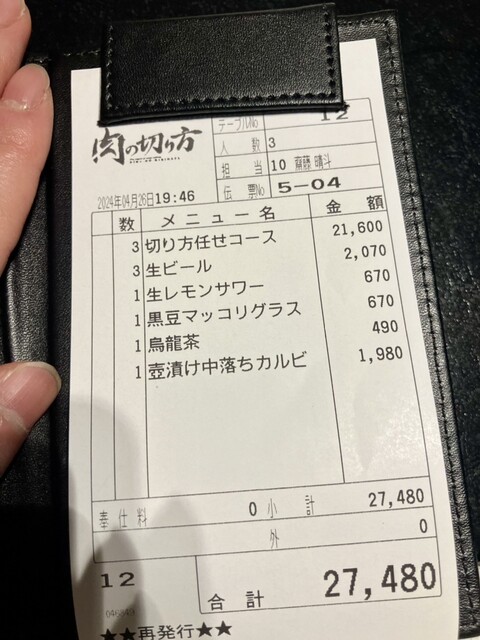 肉の切り方
テーブルNo 12
人数 3
担当 10 齋藤 晴斗
伝票No 5-04
2024年04月26日19:46
数 メニュー名 金額
3 切り方任せコース 21,600
3 生ビール 2,070
1 生レモンサワー 670
1 黒豆マッコリグラス 670
1 烏龍茶 490
1 壺漬け中落ちカルビ 1,980
奉仕料 0 小計 27,480
外 0
12
合計 27,480
★★再発行★★